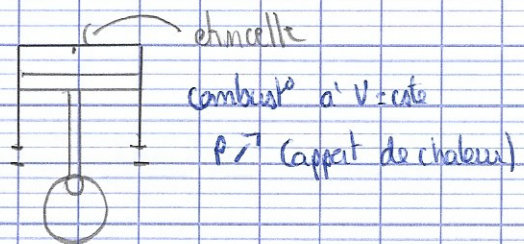 étincelle
combust° à V = cste
P ↗ (apport de chaleur)